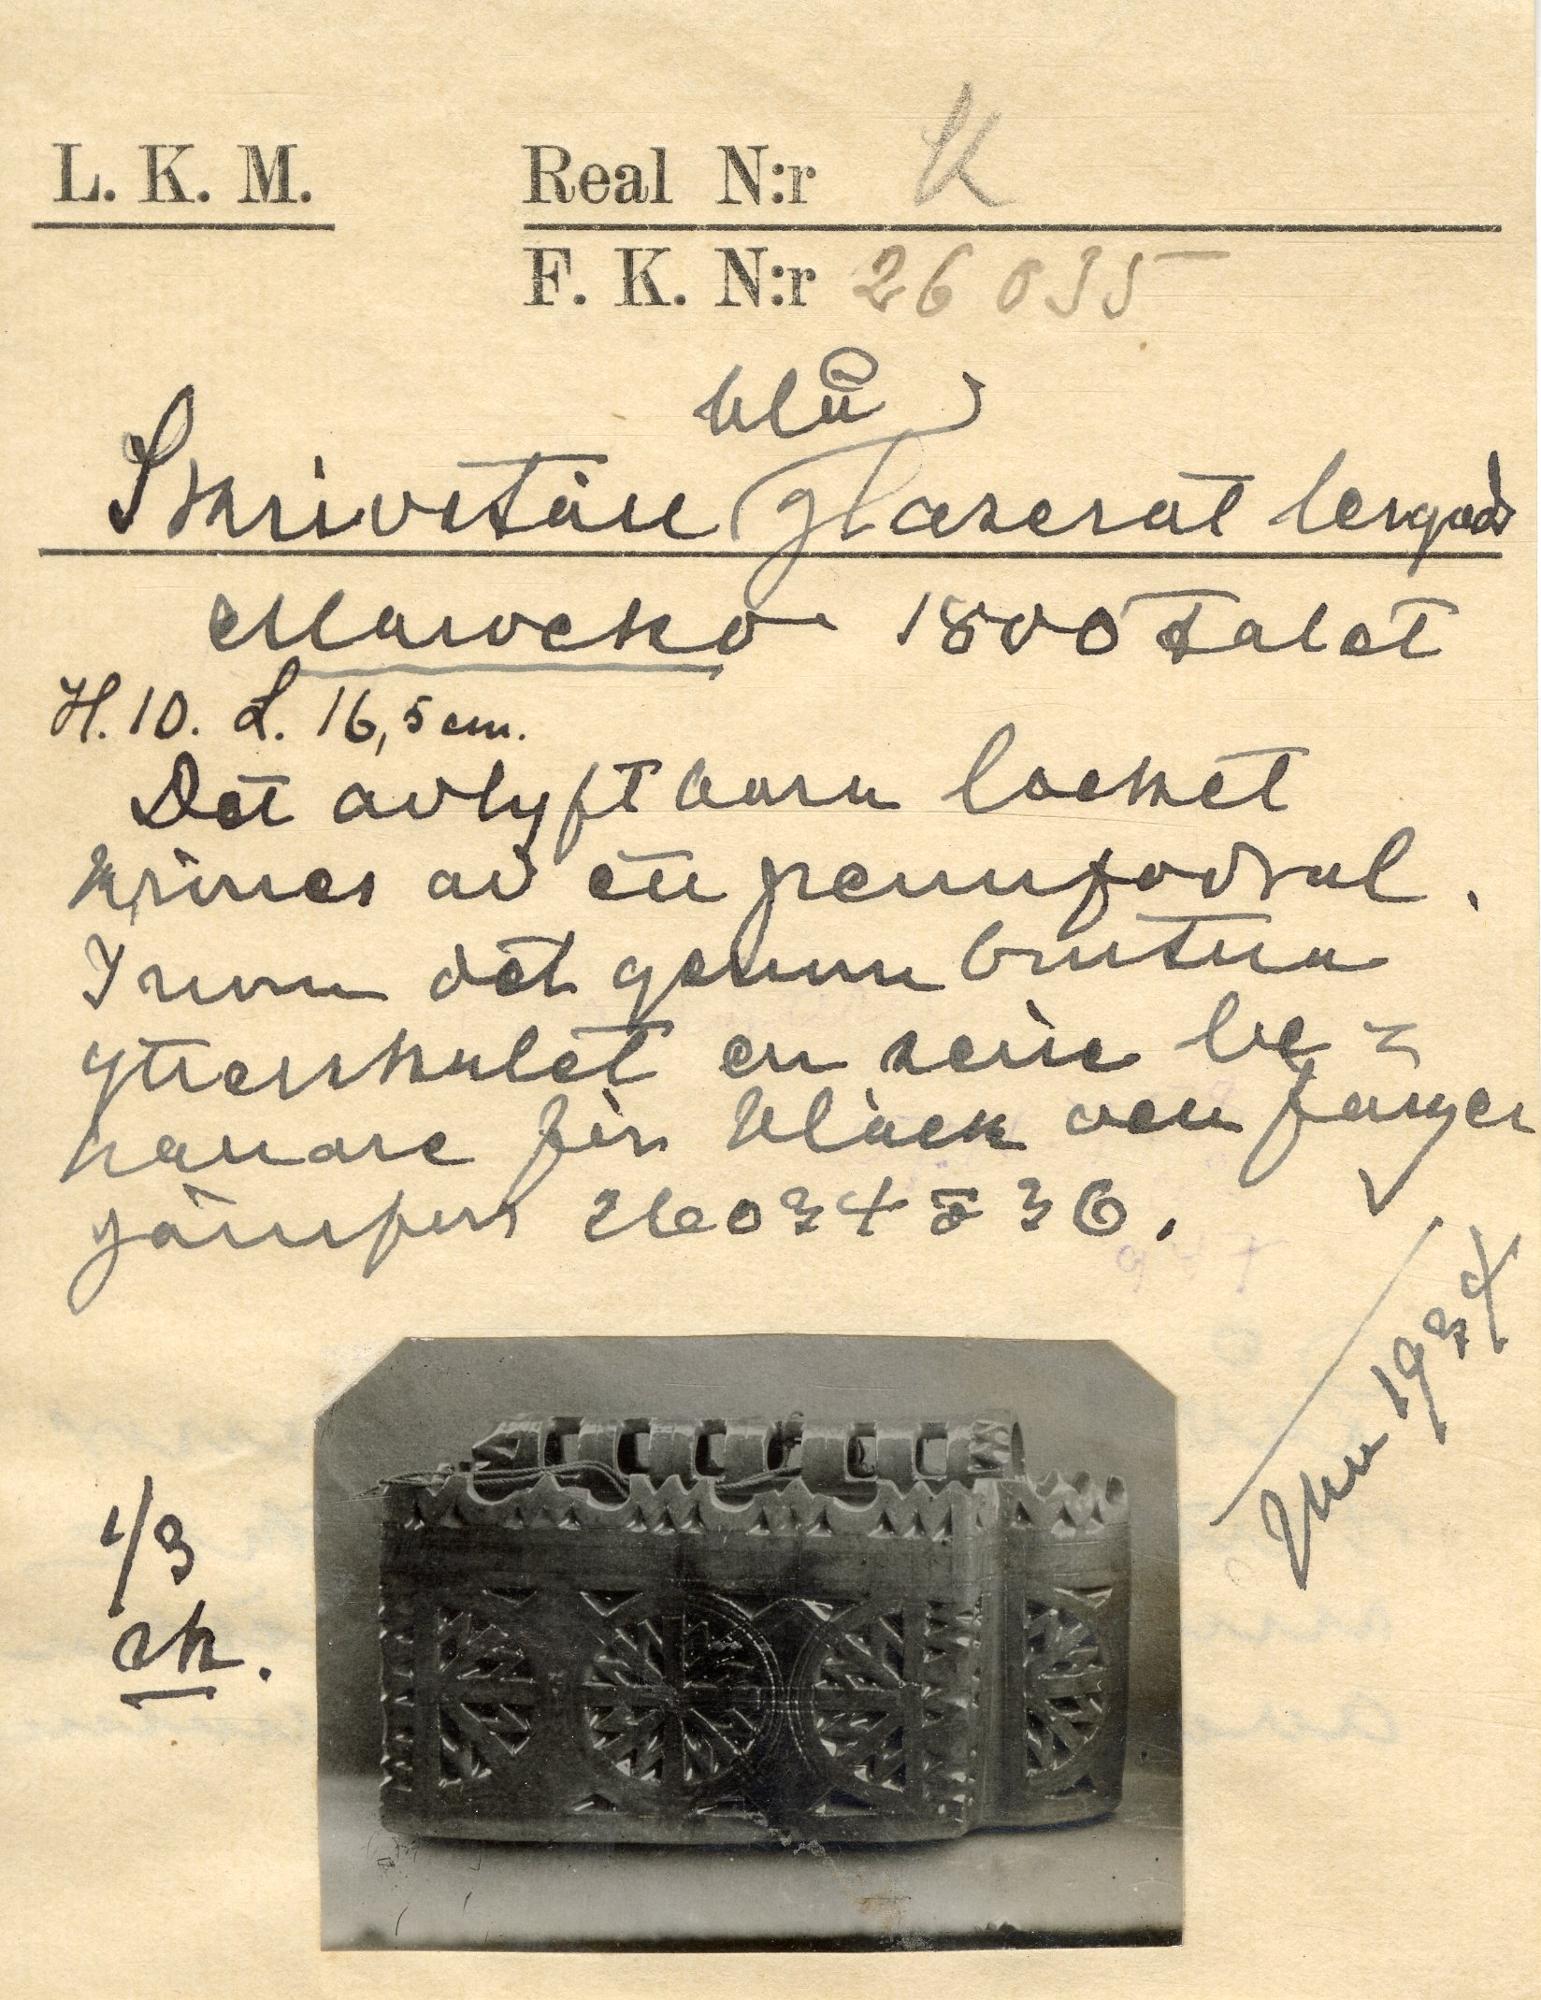 L. K. M.
Real N:r K
F. K. N:r 26 035
blå
Skrivställ glaserat lergods
Marocko 1800 talet
H. 10. L. 16,5 cm.
Det avlyftbara locket
krönes av ett pennfodral.
Inom det genombrutna
ytterskalet en serie be=
hållare för bläck och färger
jämför 26034 o 36.
1934
1/3